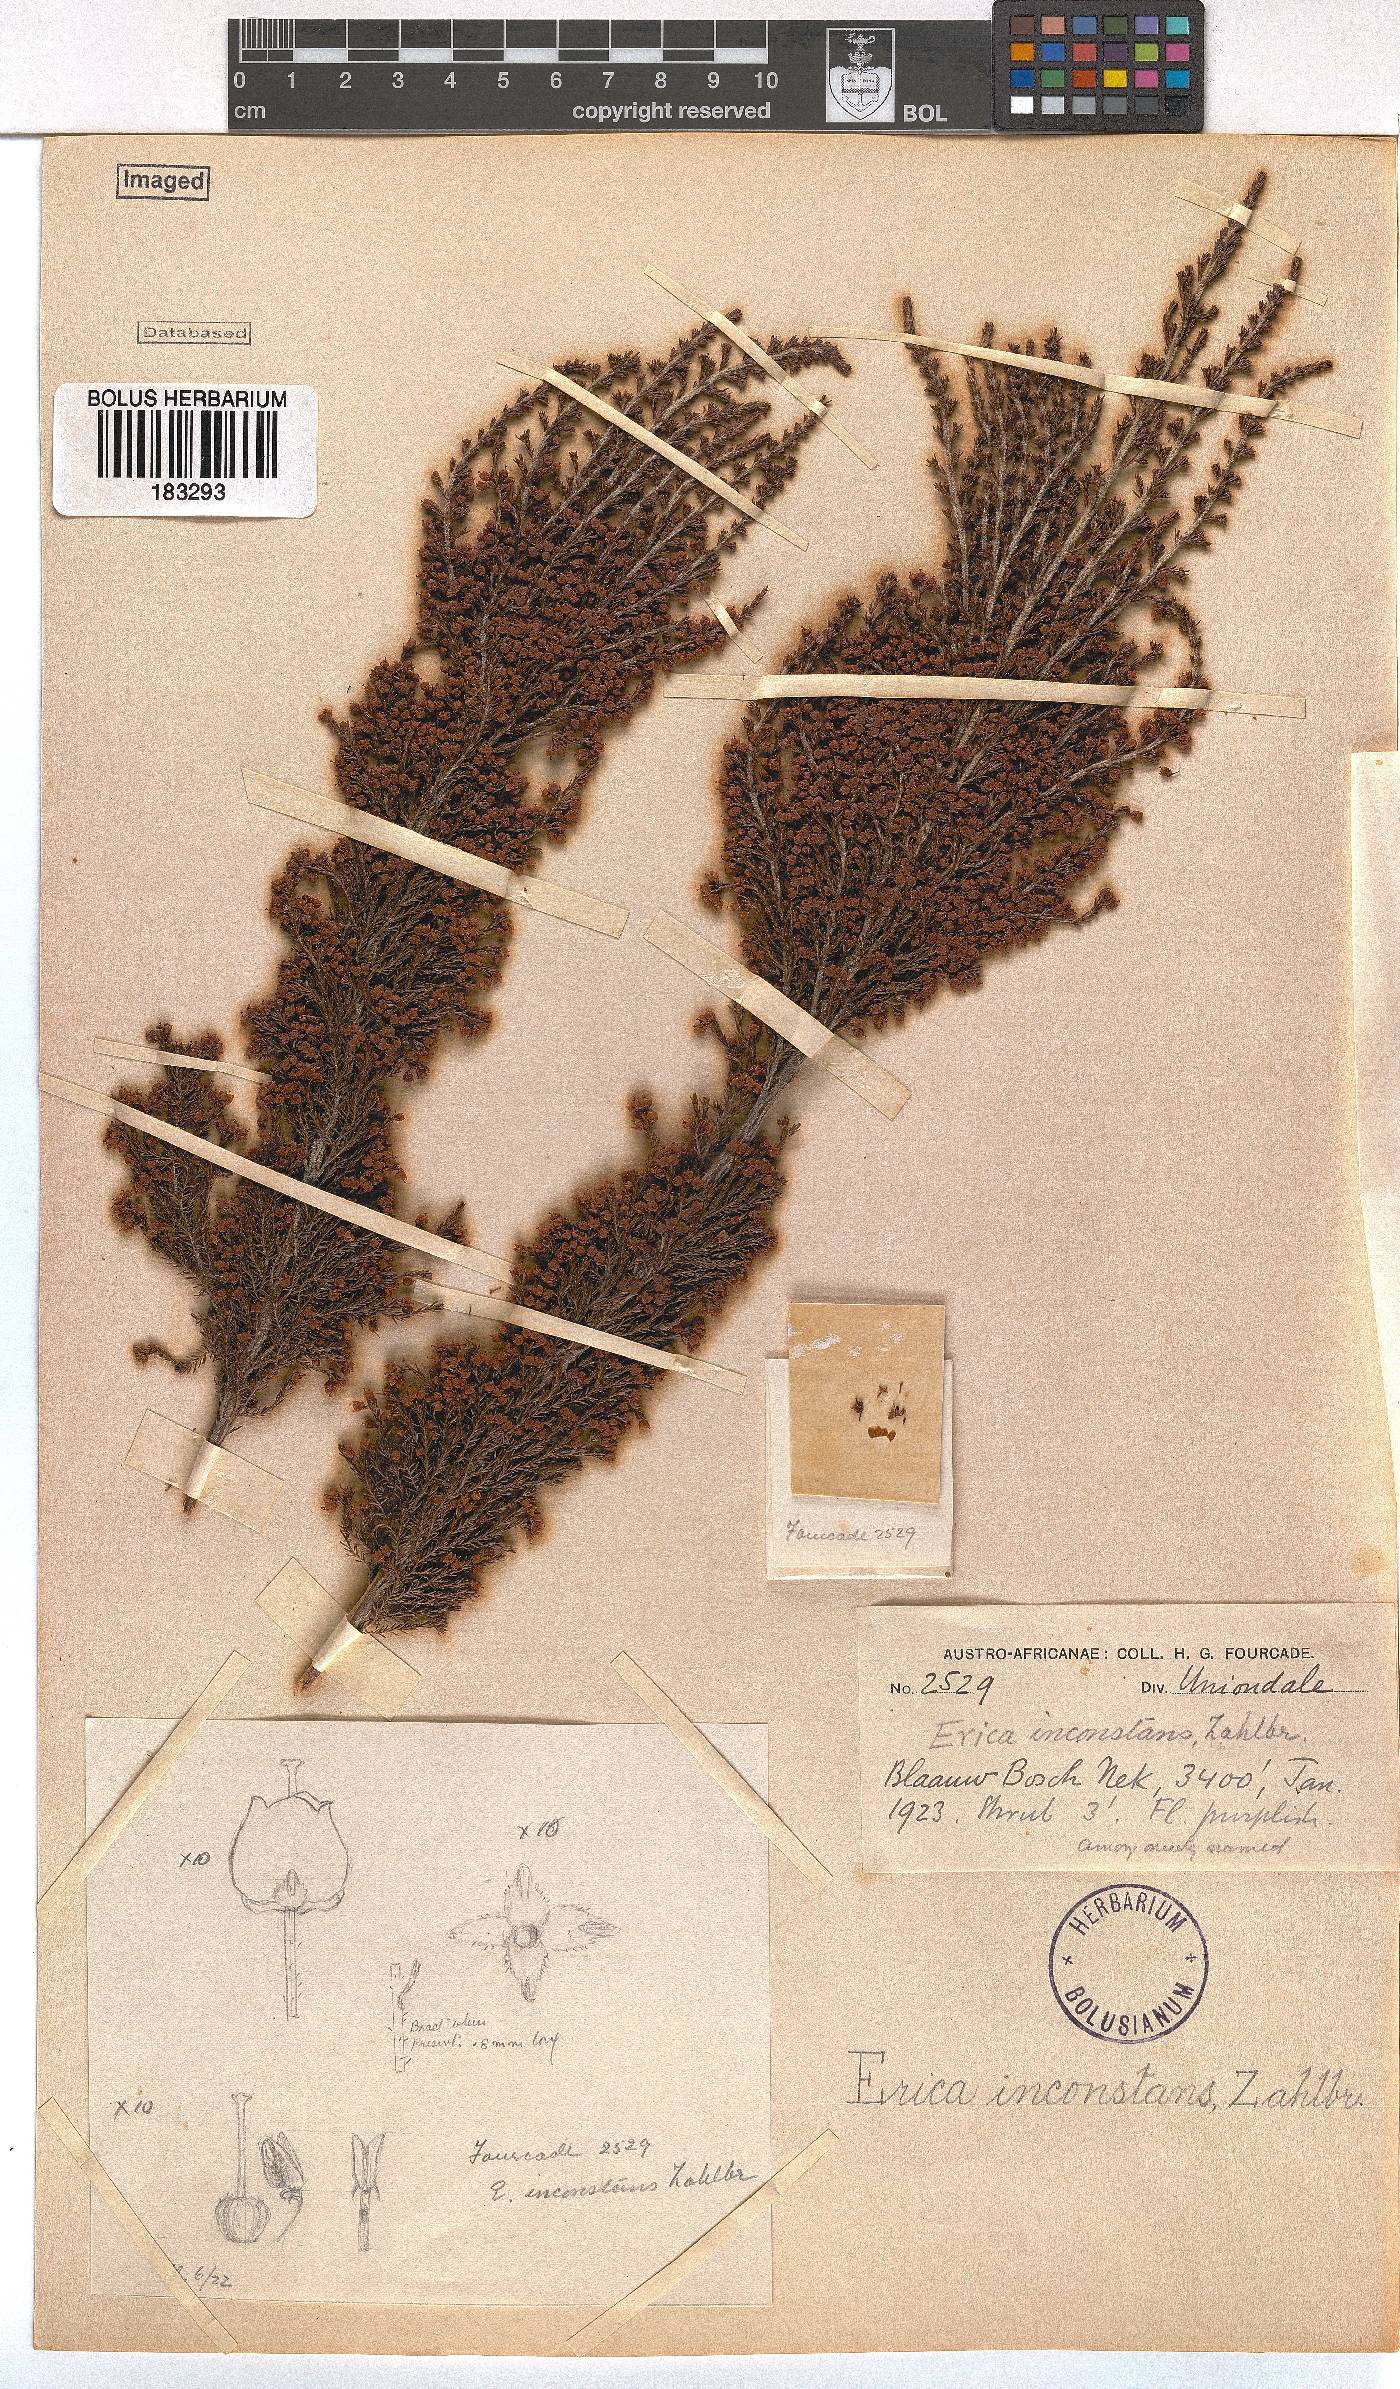 0 1 2 3 4 5 6 7 8 9 10
cm copyright reserved BOL
Imaged
Databased
BOLUS HERBARIUM
183293
Fourcade 2529
AUSTRO-AFRICANAE: COLL. H. G. FOURCADE.
No. 2529 Div. Uniondale
Erica inconstans, Zahlbr.
Blaauw Bosch Nek, 3400', Jan.
1923. Shrub 3'. Fl. purplish.
HERBARIUM
BOLUSIANUM
Erica inconstans, Zahlbr.
x 10
x 10
Bract
present. .8 mm long
x 10
Fourcade 2529
E. inconstans Zahlbr
6/22